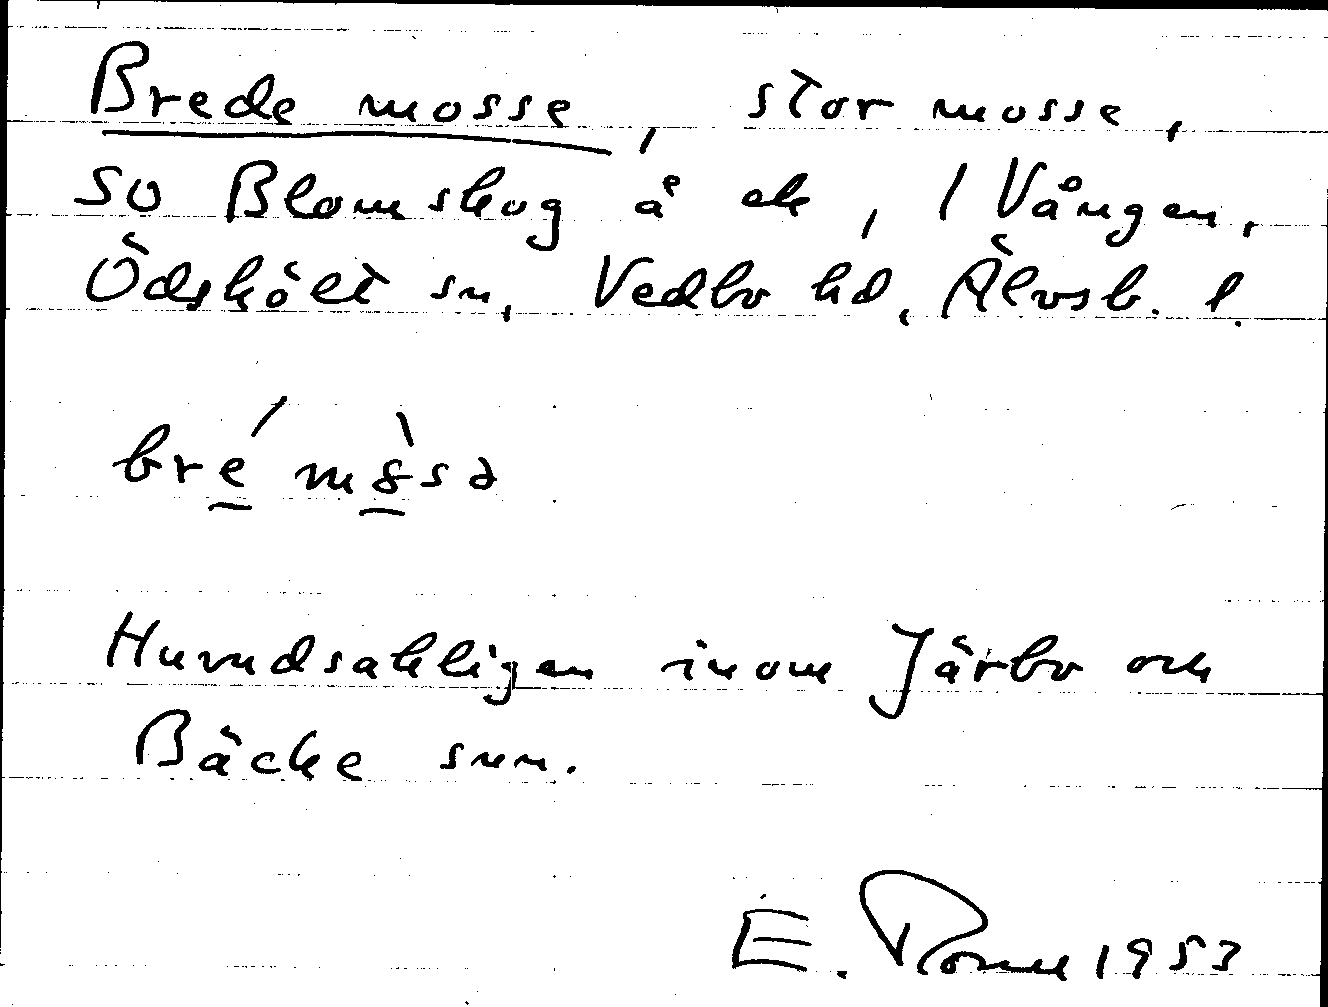 Brede mosse, stor mosse,
SO Blomskog å ek, 1 Vången,
Ödskölt sn, Vedbo hd, Älvsb. l.
bré mòsə
Huvudsakligen inom Järbo och
Bäcke snr.
E. 1953